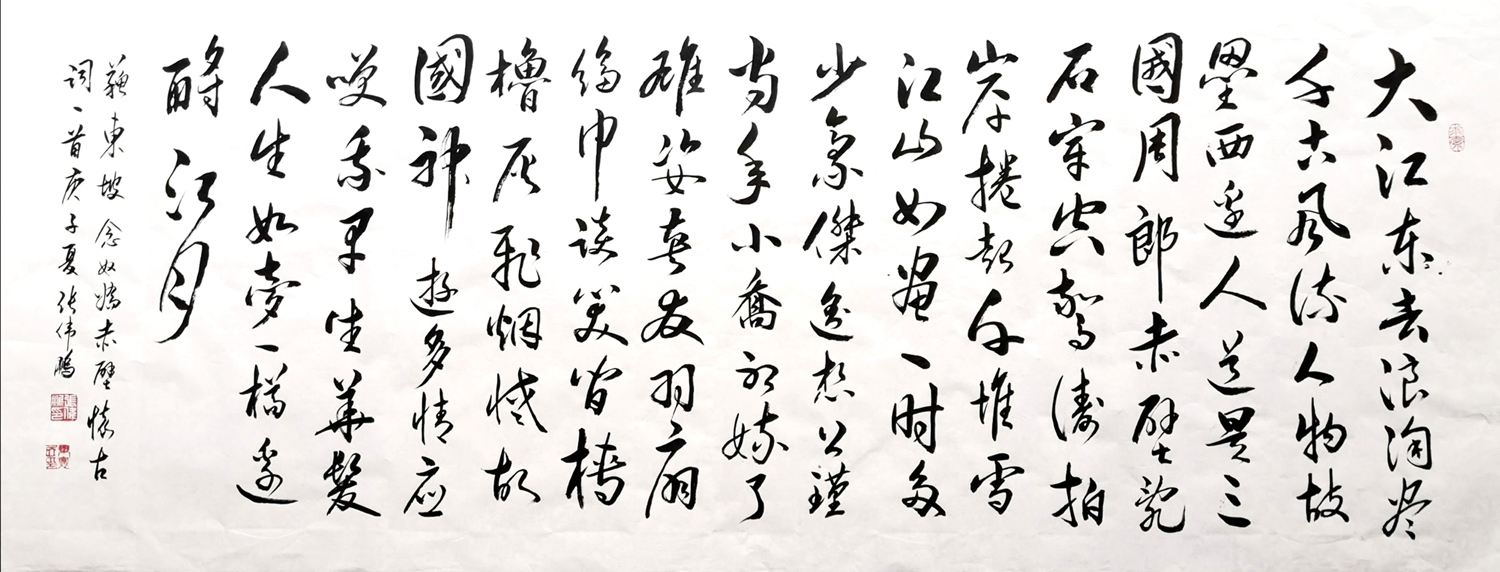 大江东去浪淘尽
千古风流人物故
壘西边人道是三
國周郎赤壁乱
石穿空驚涛拍
岸捲起千堆雪
江山如畫一时多
少豪傑遥想公瑾
当年小喬初嫁了
雄姿英发羽扇
纶巾谈笑间樯
櫓灰飛烟滅故
國神遊多情应
咲我早生華髮
人生如夢一樽還
酹江月
蘇東坡念奴嬌赤壁懷古
词一首庚子夏张伟鹏